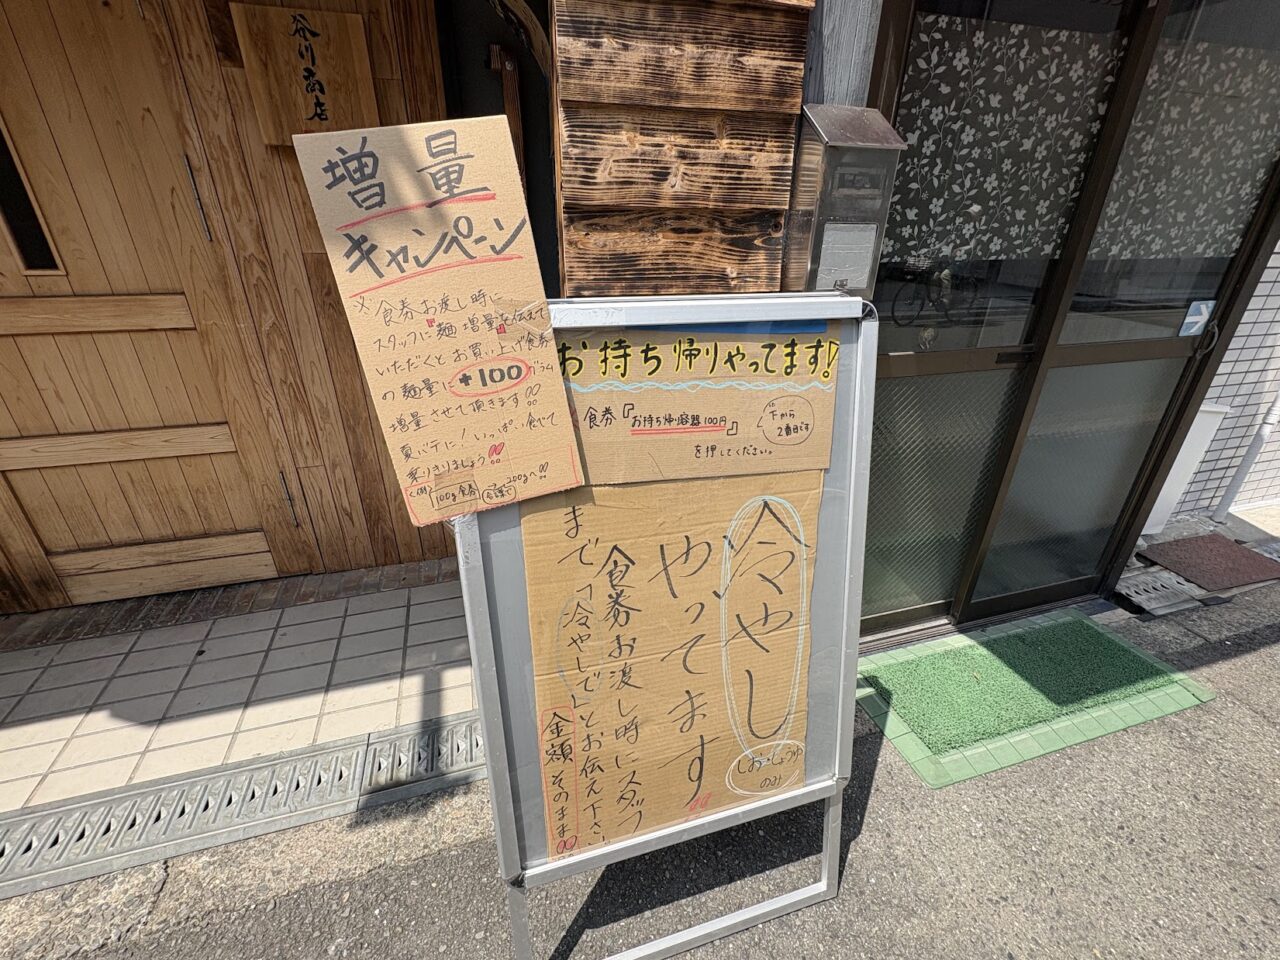 谷川商店
増量
キャンペーン
※食券お渡し時に
スタッフに『麺増量』を伝えて
いただくとお買い上げ食券
の麺量に+100グラム
増量させて頂きます!!
夏バテに!いっぱい食べて
乗りきりましょう!!
<例>100g食券 → 200gへ!!
お持ち帰りやってます!
食券『お持ち帰り容器100円』
下から
2番目です
を押してください。
冷やし
しお・しょうゆ
のみ
やってます!!
食券お渡し時にスタッフ
まで「冷やしで」とお伝え下さい
金額そのまま!!